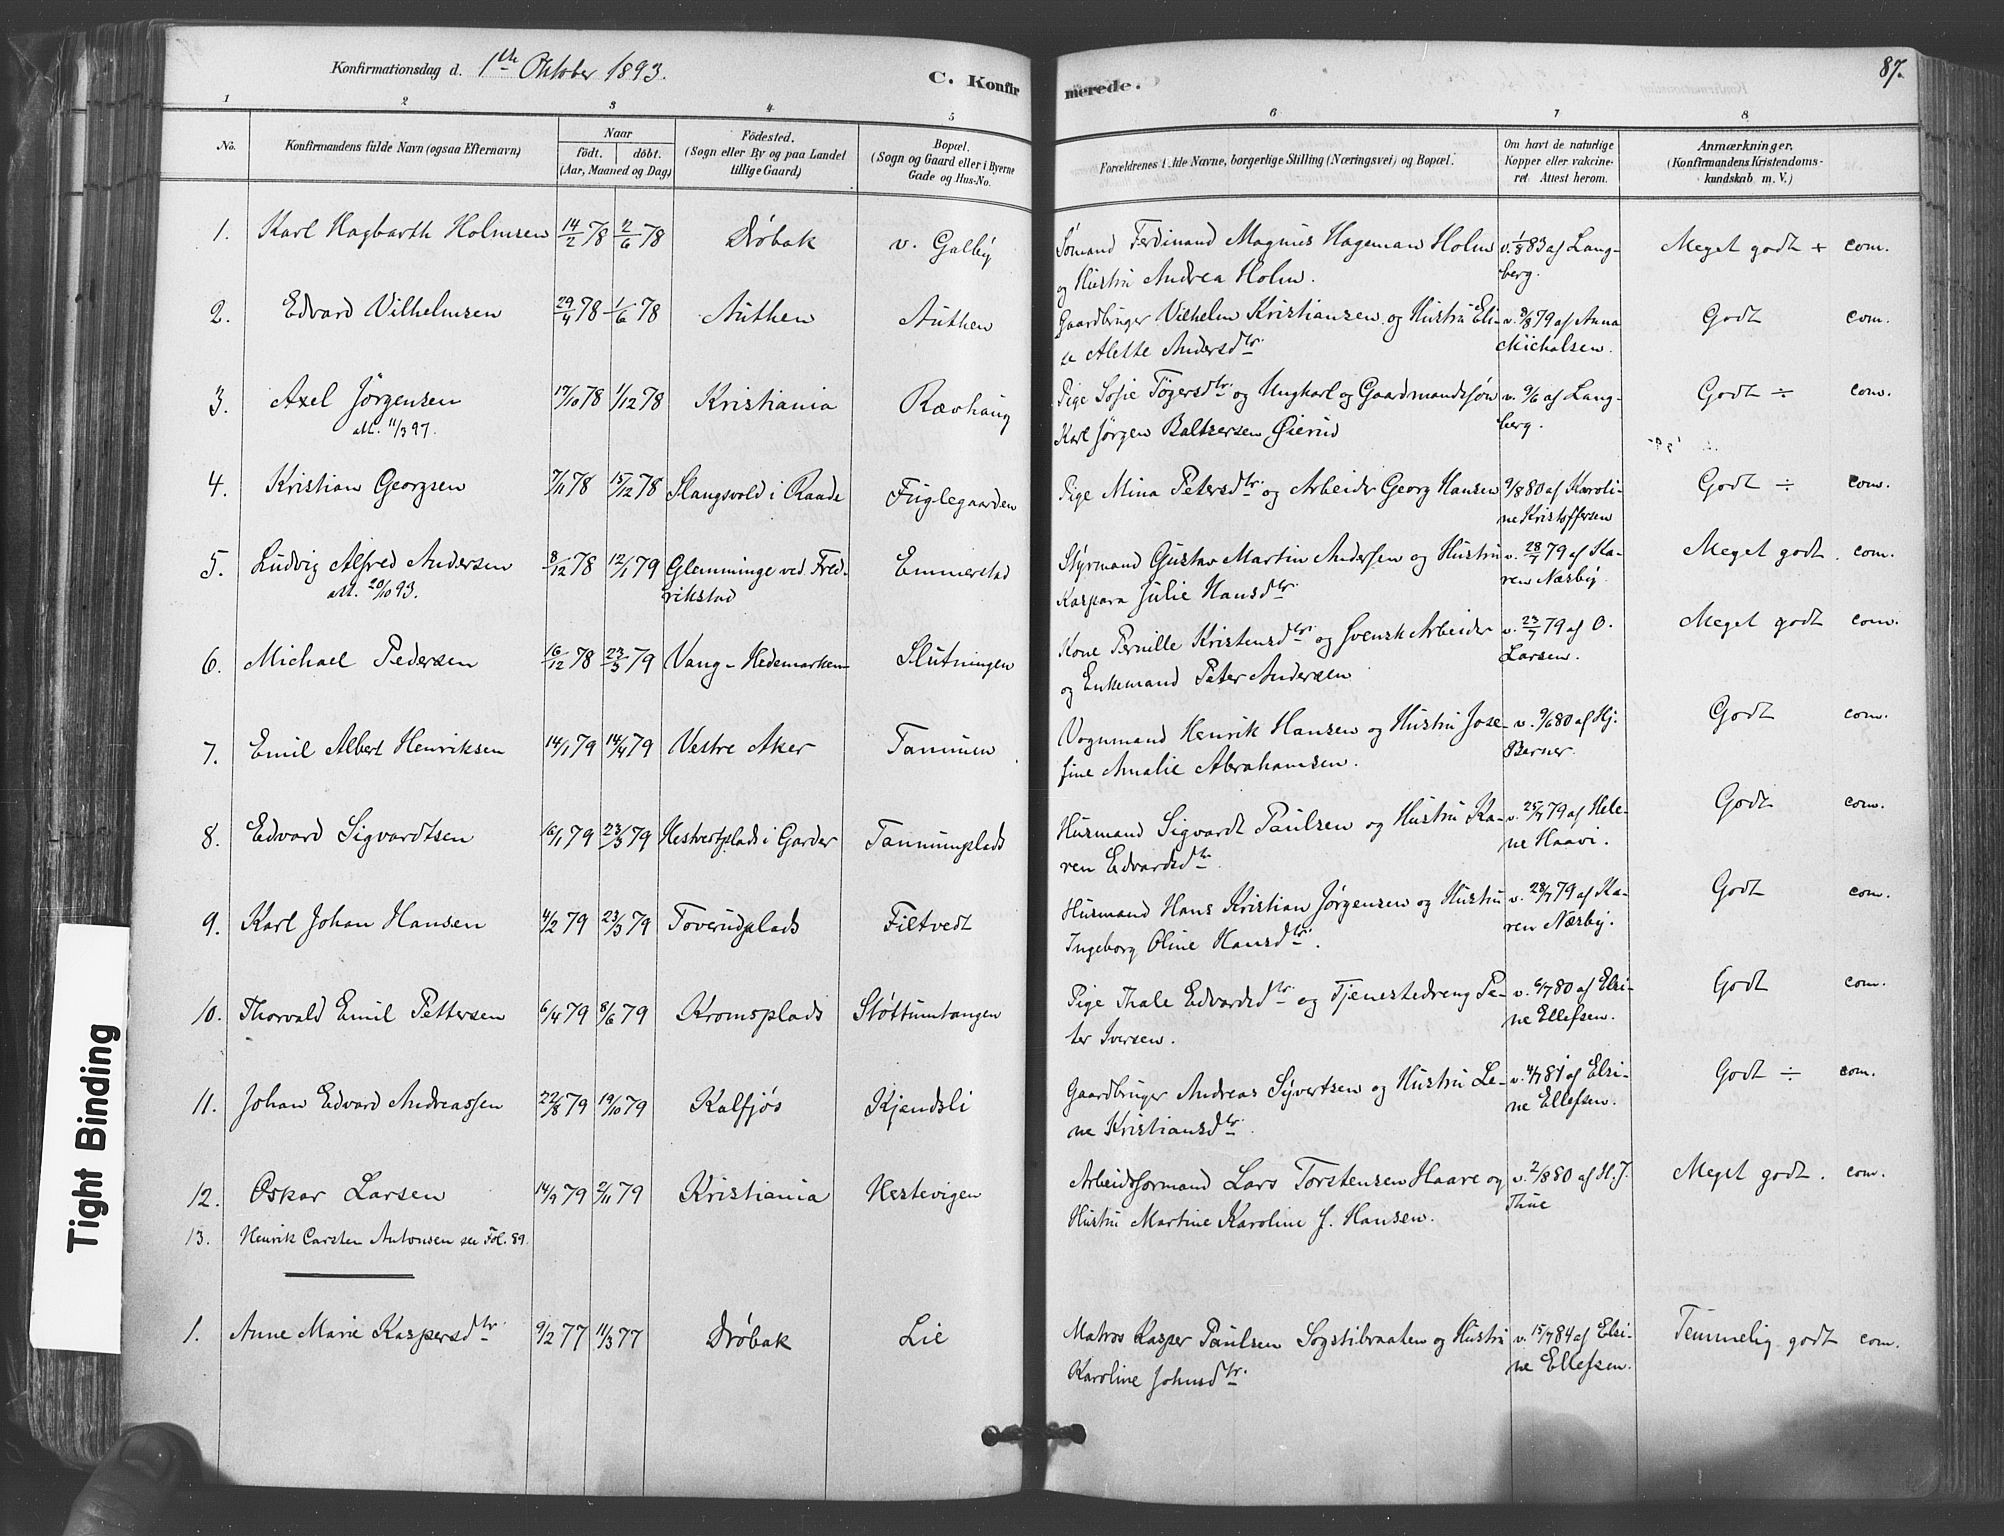 Konfirmationsdag d. 1ste Oktober 1893.
C. Konfirmerede.
87.
1 2 3 4 5 6 7 8
No.
Konfirmandens fulde Navn (ogsaa Efternavn)
Naar
födt. döbt.
(Aar, Maaned og Dag)
Födested.
(Sogn eller By og paa Landet
tillige Gaard)
Bopæl.
(Sogn og Gaard eller i Byerne
Gade og Hus-No.
Forældrenes fulde Navne, borgerlige Stilling (Næringsvei) og Bopæl.
Om havt de naturlige
Kopper eller vakcine-
ret. Attest herom.
Anmærkninger.
(Konfirmandens Kristendoms-
kundskab m. V.)
1. Karl Hagbarth Holmsen 14/2 78 2/6 78 Drøbak v. Galby Sømand Ferdinand Magnus Hageman Holm v. 1/8 83 af Lang- Meget godt + com.
og Hustru Andrea Holm. berg.
2. Edvard Vilhelmsen 29/4 78 1/6 78 Authen Authen Gaardbruger Vilhelm Kristiansen og Hustru Eli- v. 9/8 79 af Anna Godt com.
se Alette Andersdtr. Micholsen.
3. Axel Jörgensen 17/10 78 1/12 78 Kristiania Ravhaug Pige Sofie Tøgersdtr. og Ungkarl og Gaardmandssøn v. 9/6 af Lang- Godt ÷ com.
att. 11/3 97. Karl Jörgen Baltzersen Øierud berg.
4. Kristian Georgsen 7/11 78 15/12 78 Slangsvold i Raade Fuglegaarden Pige Mina Petersdtr. og Arbeider Georg Hansen 9/8 80 af Karoli- Godt ÷ com.
ne Kristoffersen
5. Ludvig Alfred Andersen 8/12 78 12/1 79 Glemminge ved Fred- Emmerstad Styrmand Gustav Martin Andersen og Hustru v. 28/7 79 af Ka- Meget godt. com.
att. 20/10 93. rikstad Kaspara Julie Hansdtr. ren Næsby.
6. Michael Pedersen 16/12 78 23/3 79 Vang - Hedemarken Slutningen Kone Pernille Kristensdtr. og Svensk Arbeider v. 23/7 79 af O. Meget godt com.
og Enkemand Peter Andersen Larsen.
7. Emil Albert Henriksen 14/1 79 14/4 79 Vestre Aker Tannum Vognmand Henrik Hansen og Hustru Jose- v. 9/6 80 af Hj. Godt com.
fine Amalie Abrahamsen. Berner.
8. Edvard Sigvardtsen 16/1 79 23/3 79 Hestvedtplads i Garder Tannumplads Husmand Sigvardt Paulsen og Hustru Ka- v. 25/7 79 af Hele- Godt com.
ren Edvardsdtr. ne Haavi.
9. Karl Johan Hansen 4/2 79 23/3 79 Toverudplads Filtvedt Husmand Hans Kristian Jørgensen og Hustru v. 28/7 79 af Ka- Godt com.
Ingeborg Oline Hansdtr. ren Næsby.
10. Thorvald Emil Pettersen 6/4 79 8/6 79 Kromsplads Støttumtangen Pige Thale Edvardsdtr. og Tjenestedreng Pe- v. 6/7 80 af Elri- Godt com.
ter Iversen. ne Ellefsen.
11. Johan Edvard Andreassen 22/8 79 19/10 79 Kalfjøs Kjendsli Gaardbruger Andreas Syvertsen og Hustru Le- v. 4/7 81 af Elri- Godt ÷ com.
ne Kristiansdtr. ne Ellefsen.
12. Oskar Larsen 14/9 79 2/11 79 Kristiania Hestevigen Arbeidsformand Lars Torstensen Haare og v. 2/8 80 af H. J. Meget godt. com.
Hustru Martine Karoline J. Hansen. Thue
13. Henrik Carsten Antonsen se Fol. 89.
1. Anne Marie Kaspersdtr. 9/2 77 11/3 77 Drøbak Lie Matros Kasper Paulsen Sogstibraaten og Hustru v. 15/7 84 af Elri- Temmelig godt com.
Karoline Johnsdtr. ne Ellefsen.
Tight Binding